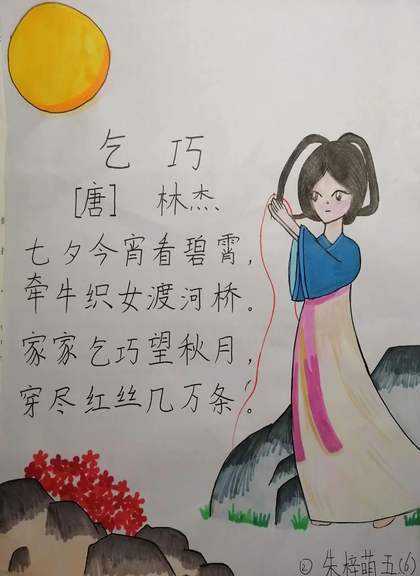 乞巧
[唐] 林杰
七夕今宵看碧霄，
牵牛织女渡河桥。
家家乞巧望秋月，
穿尽红丝几万条。
② 朱梓萌五(6)